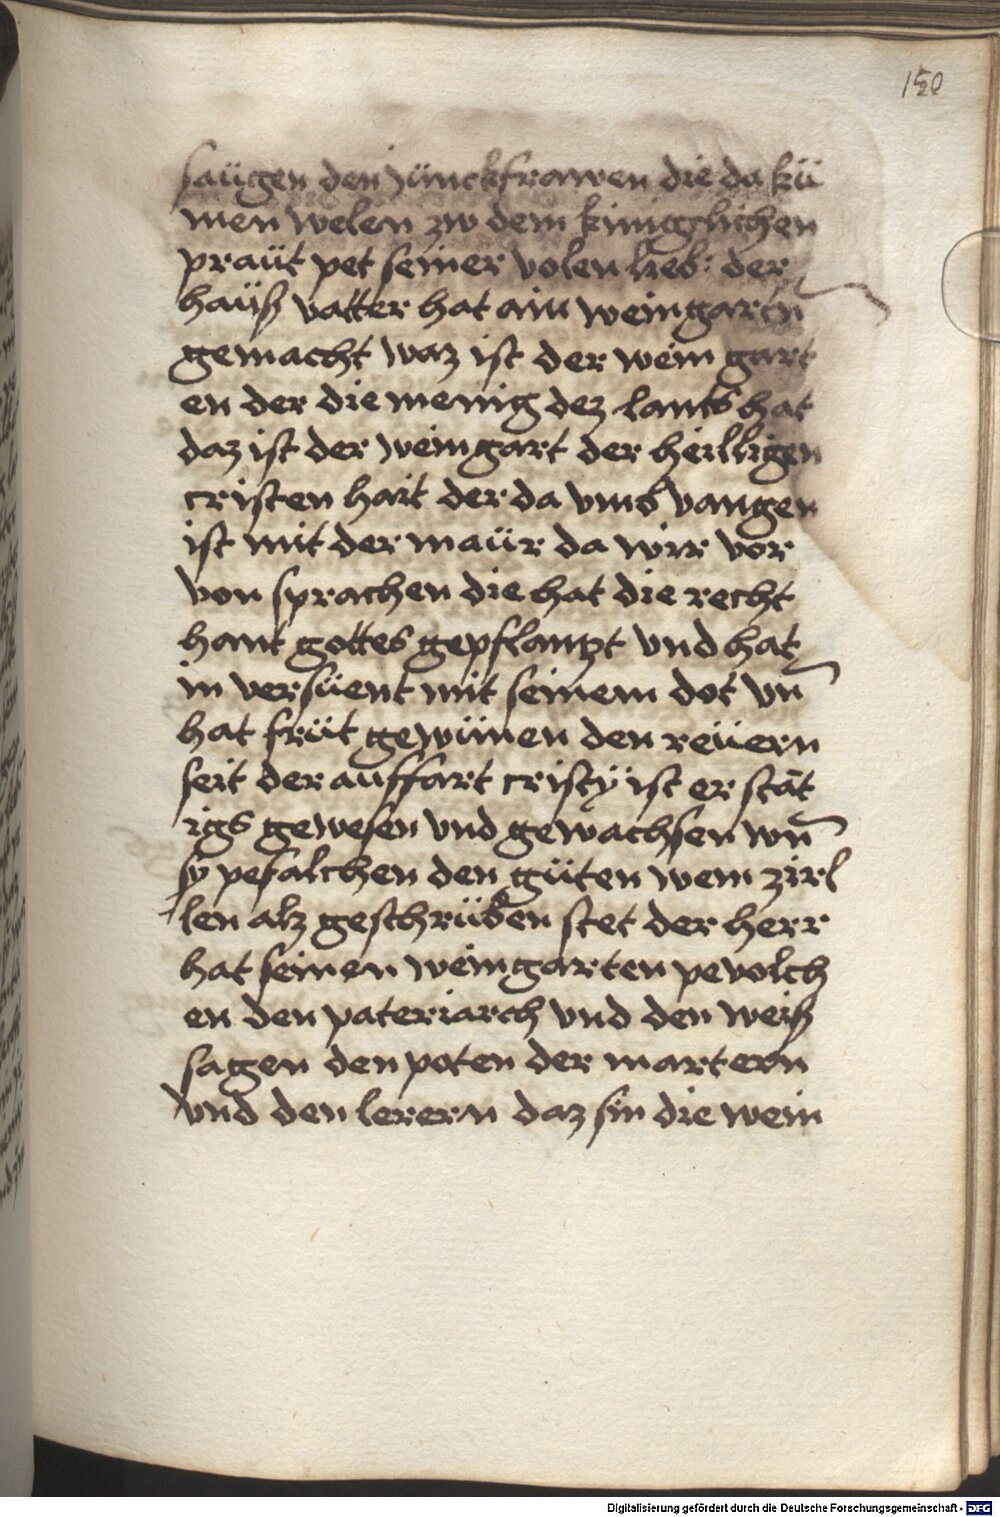 150
saügen den jünckfrawen die da kü
men welen zw dem kinigglichen
praüt pet seiner volen lieb: der
haüß vatter hat ain weingartn̄
gemacht waz ist der wein gart
en der die menig dez lants hat
daz ist der weingart der heilligen
cristen hait der da vmbvangen
ist mit der maür da wir vor
von sprachen die hat die recht
hant gottes gepflantzt vnd hat
in versüent mit seinem dot vn̄
hat früt gewünen den reüern
seit der auffart cristÿ ist er stät
igs gewesen vnd gewachsen wn̄
sy pefalchen den güten wein zirl
len alz geschrüben stet der herr
hat seinen weingarten pevolch
en den pateriarch vnd den weiß
sagen den poten der martern
vnd den lerern daz sin die wein
Digitalisierung gefördert durch die Deutsche Forschungsgemeinschaft - DFG